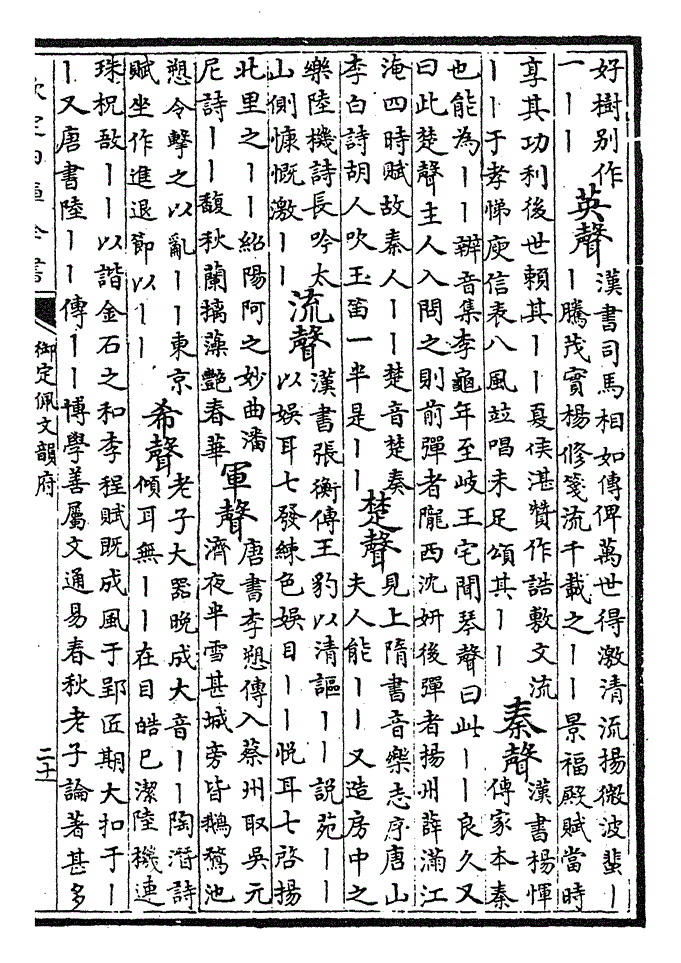 好樹別作
一丨丨
英聲
漢書司馬相如傳俾萬世得激清流揚微波蜚丨
丨騰茂實楊修箋流千載之丨丨景福殿賦當時
享其功利後世賴其丨丨夏侯湛贊作誥敷文流
丨丨于孝悌庾信表八風竝唱未足頌其丨丨
秦聲
漢書楊惲
傳家本秦
也能為丨丨辨音集李龜年至岐王宅聞琴聲曰此丨丨良久又
曰此楚聲主人入問之則前彈者隴西沈妍後彈者揚州薛滿江
淹四時賦故秦人丨丨楚音楚奏
李白詩胡人吹玉笛一半是丨丨
楚聲
見上隋書音樂志序唐山
夫人能丨丨又造房中之
樂陸機詩長吟太
山側慷慨激丨丨
流聲
漢書張衡傳王豹以清謳丨丨說苑丨丨
以娛耳七發練色娛目丨丨恱耳七啓揚
北里之丨丨紹陽阿之妙曲潘
尼詩丨丨馥秋蘭摛藻艷春華
軍聲
唐書李愬傳入蔡州取吳元
濟夜半雪甚城旁皆鵝鶩池
愬令擊之以亂丨丨東京
賦坐作進退節以丨丨
希聲
老子大器晚成大音丨丨陶潛詩
傾耳無丨丨在目皓已潔陸機連
珠柷敔丨丨以諧金石之和李程賦既成風于郢匠期大扣于丨
丨又唐書陸丨丨傳丨丨博學善屬文通易春秋老子論著甚多
欽定四庫全書
御定佩文韻府
二十